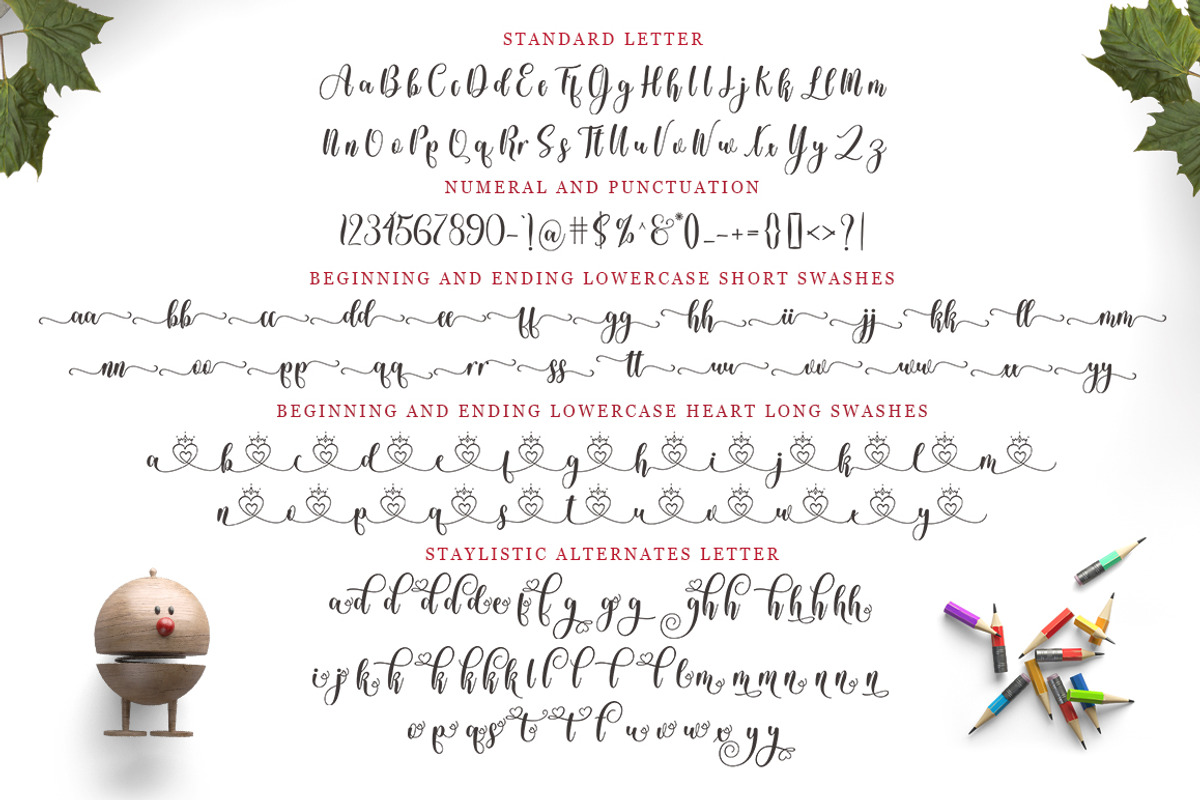 STANDARD LETTER
Aa Bb Cc Dd Ee Ff Gg Hh Ii Jj Kk Ll Mm
Nn Oo Pp Qq Rr Ss Tt Uu Vv Ww Xx Yy Zz
NUMERAL AND PUNCTUATION
1234567890-`!@#$%^&*()_~+={}[]<>?|
BEGINNING AND ENDING LOWERCASE SHORT SWASHES
aa bb cc dd ee ff gg hh ii jj kk ll mm
nn oo pp qq rr ss tt uu vv ww xx yy
BEGINNING AND ENDING LOWERCASE HEART LONG SWASHES
a b c d e f g h i j k l m
n o p q s t u v w x y
STAYLISTIC ALTERNATES LETTER
a d d d d d e f f g g g g h h h h h h h
i j k k k k k k l l l l l l m m m n n n n
o p q s t t t l u v w x y y